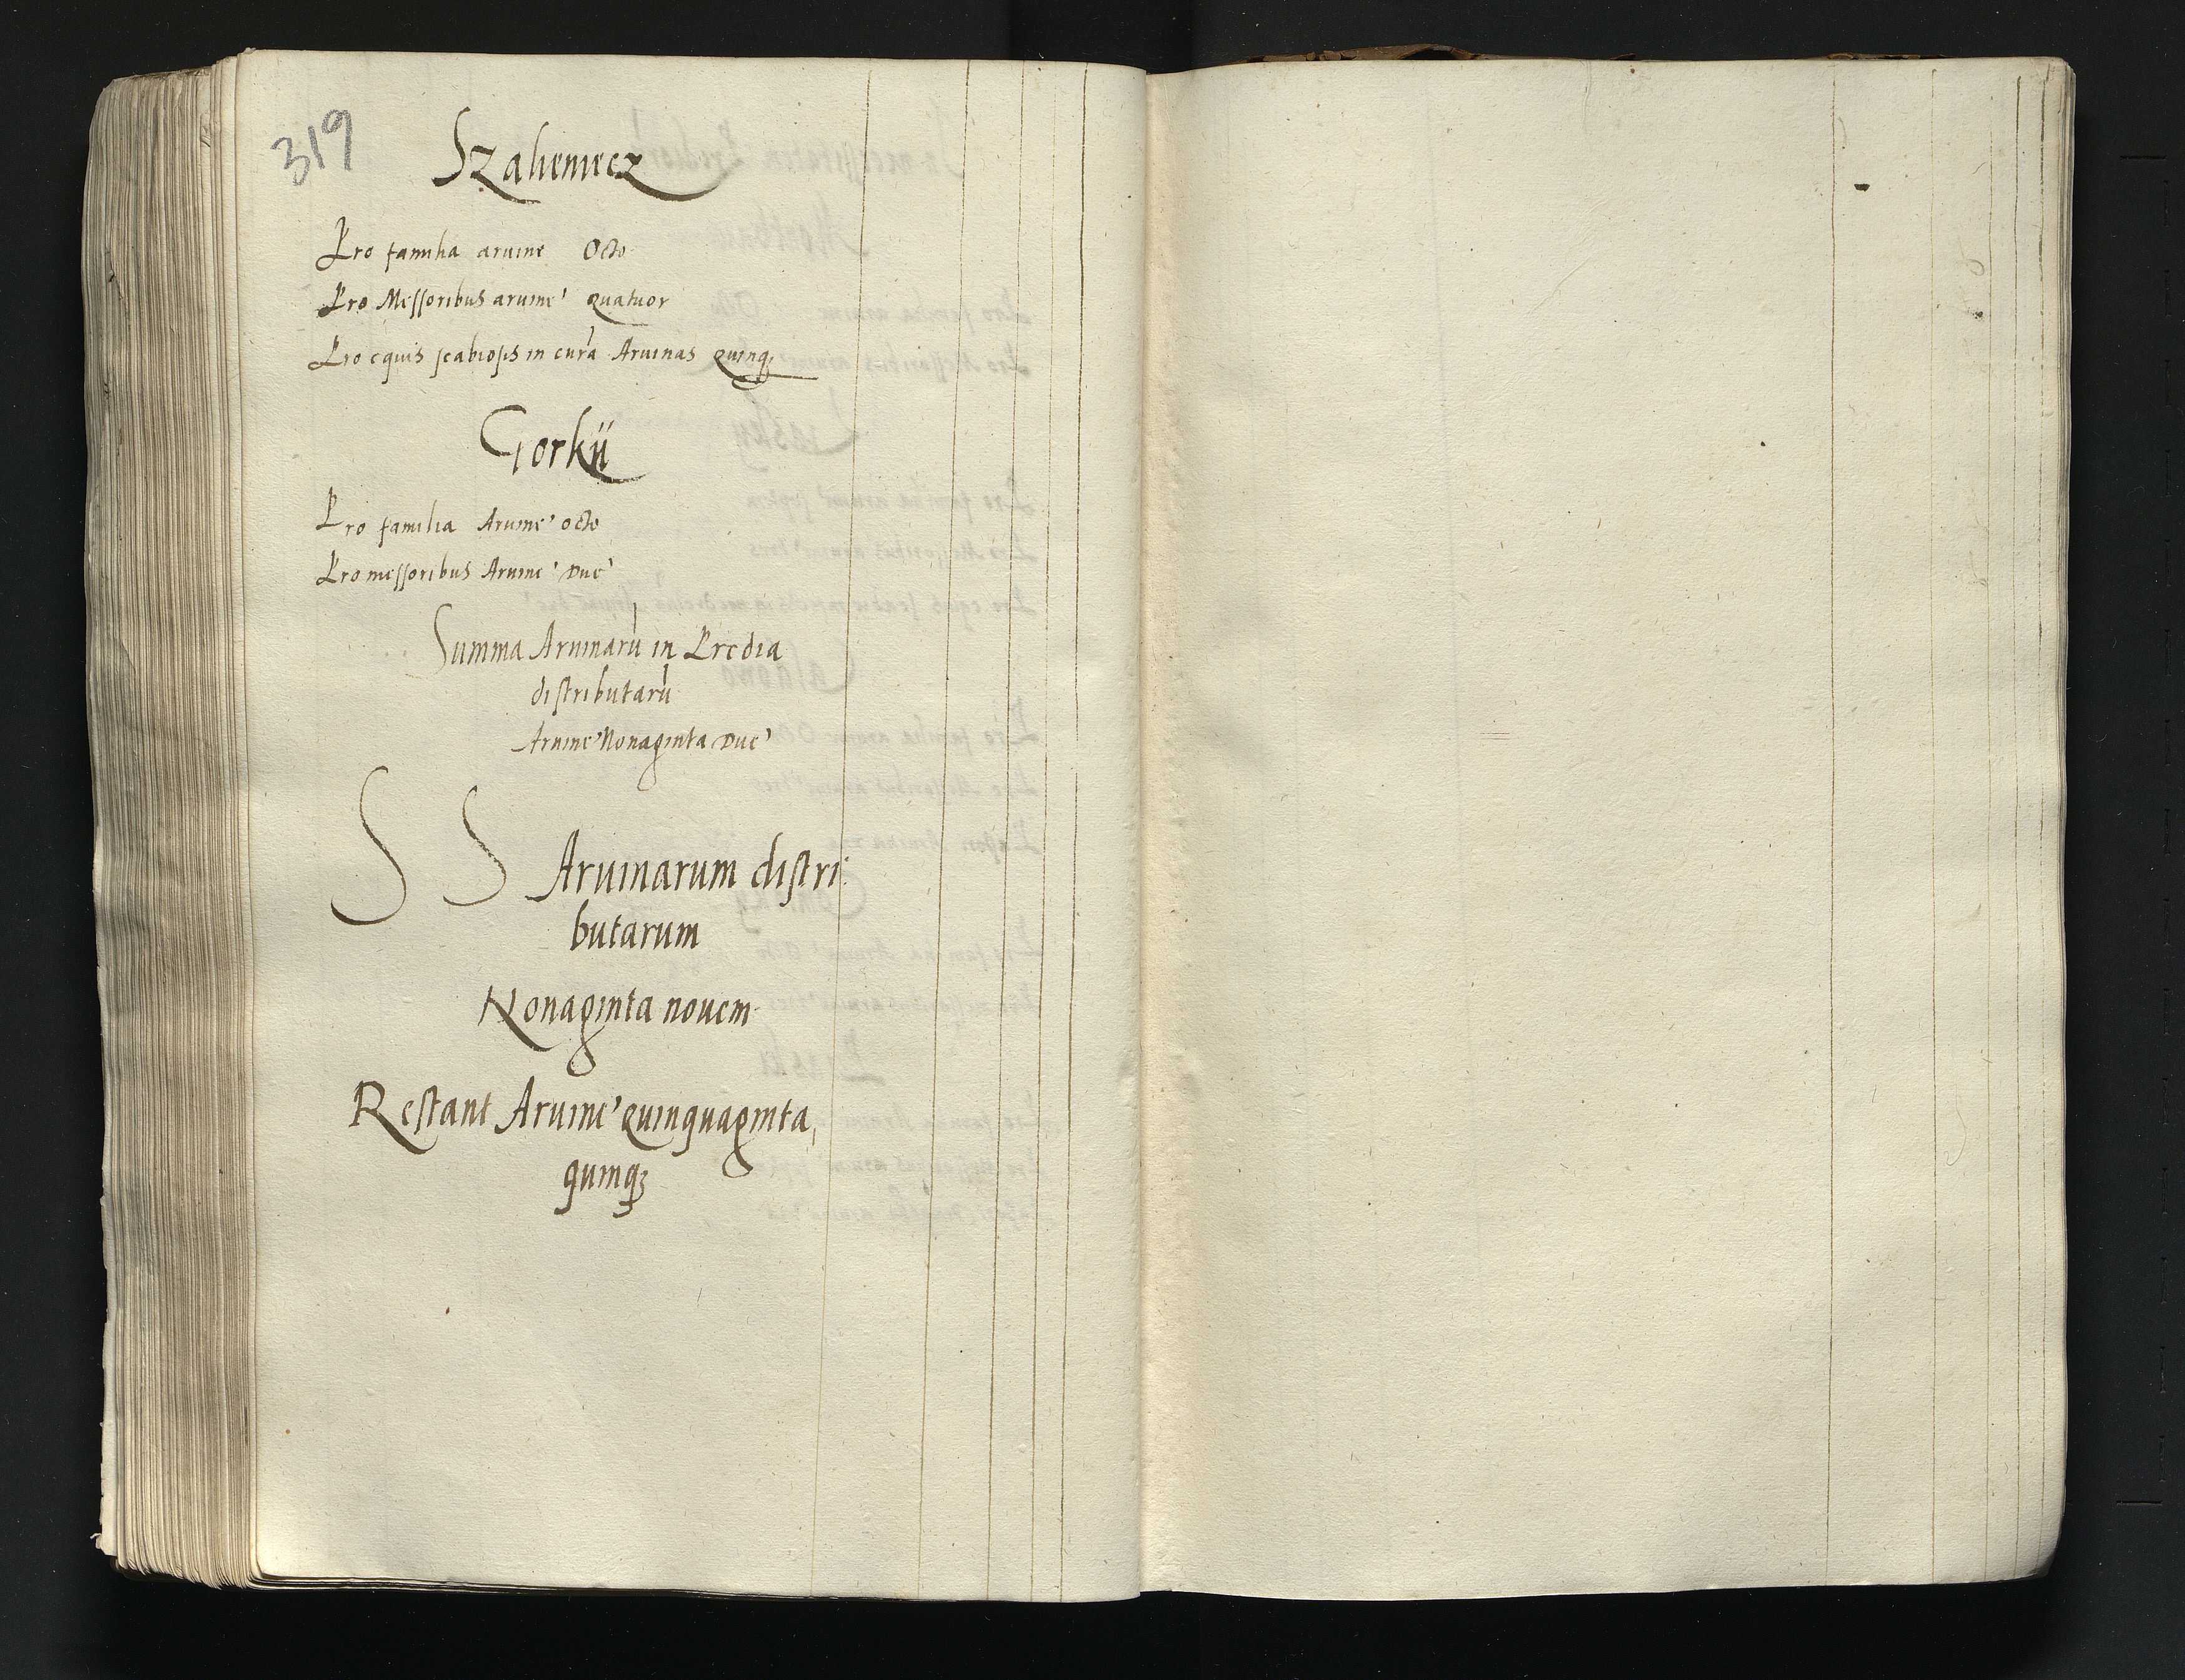 319
Szalieniecz
Pro familia aruine Octo
Pro Messoribus aruine' Quatuor
Pro equis scabiosis in curã Aruinas Quinq;
Gorkii
Pro familia Aruine' octo
Pro messoribus Aruine' Due'
Summa Aruinarũ in Predia
distributarũ
Aruine' Nonaginta Due'
S S Aruinarum distri
butarum
Nonaginta nouem
Restant Aruine' Quinquaginta,
quinq;